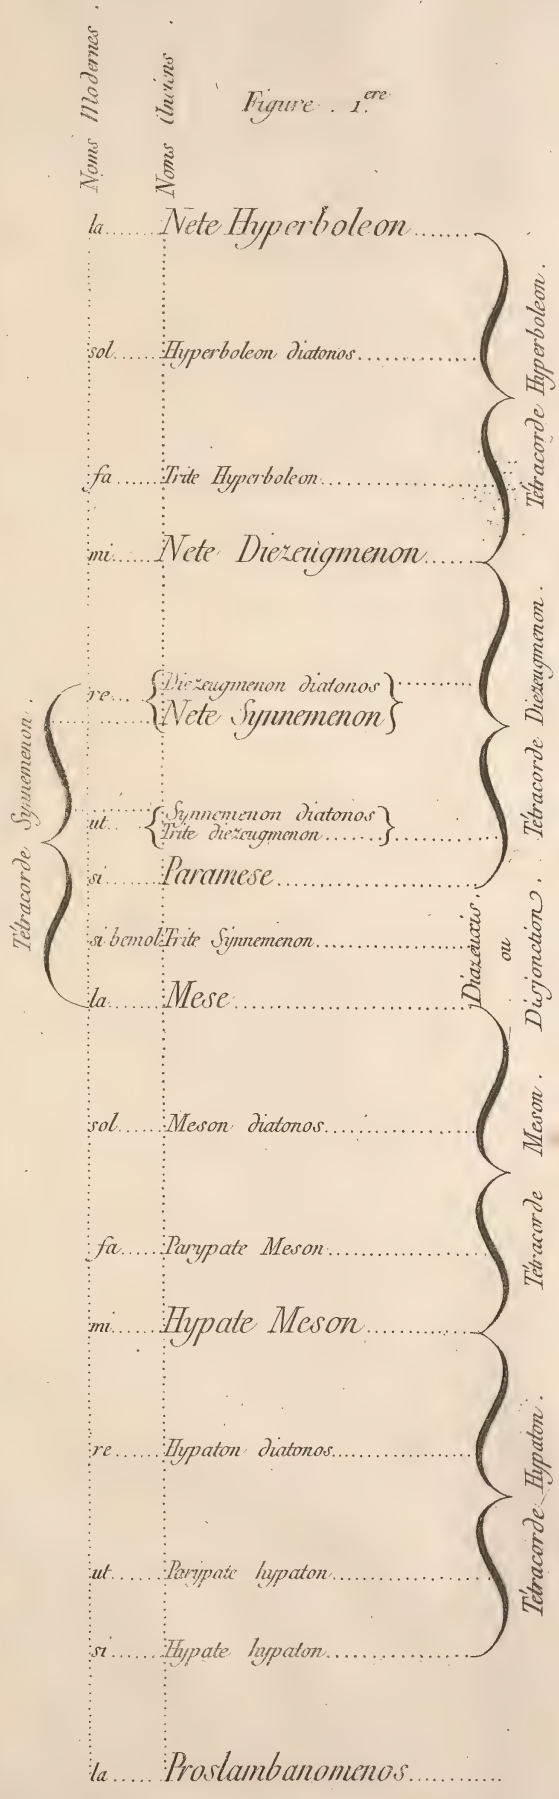 Figure . 1.ere
Noms Modernes .
Noms Anciens .
la ...... Nete Hyperboleon ......
sol ..... Hyperboleon diatonos ......
fa ...... Trite Hyperboleon ......
mi ...... Nete Diezeugmenon ......
re ... { Diezeugmenon diatonos } ......
Nete Synnemenon
ut .. { Synnemenon diatonos }
Trite diezeugmenon ......
si ...... Paramese ......
si bemol Trite Synnemenon ......
la ...... Mese ......
sol ..... Meson diatonos ......
fa ...... Parypate Meson ......
mi ...... Hypate Meson ......
re ...... Hypaton diatonos ......
ut ...... Parypate hypaton ......
si ...... Hypate hypaton ......
la ...... Proslambanomenos ......
Tétracorde Synnemenon .
Tétracorde Hyperboleon .
Tétracorde Diezeugmenon .
Diazeuxis .
ou
Disjonction .
Tétracorde Meson .
Tétracorde Hypaton .